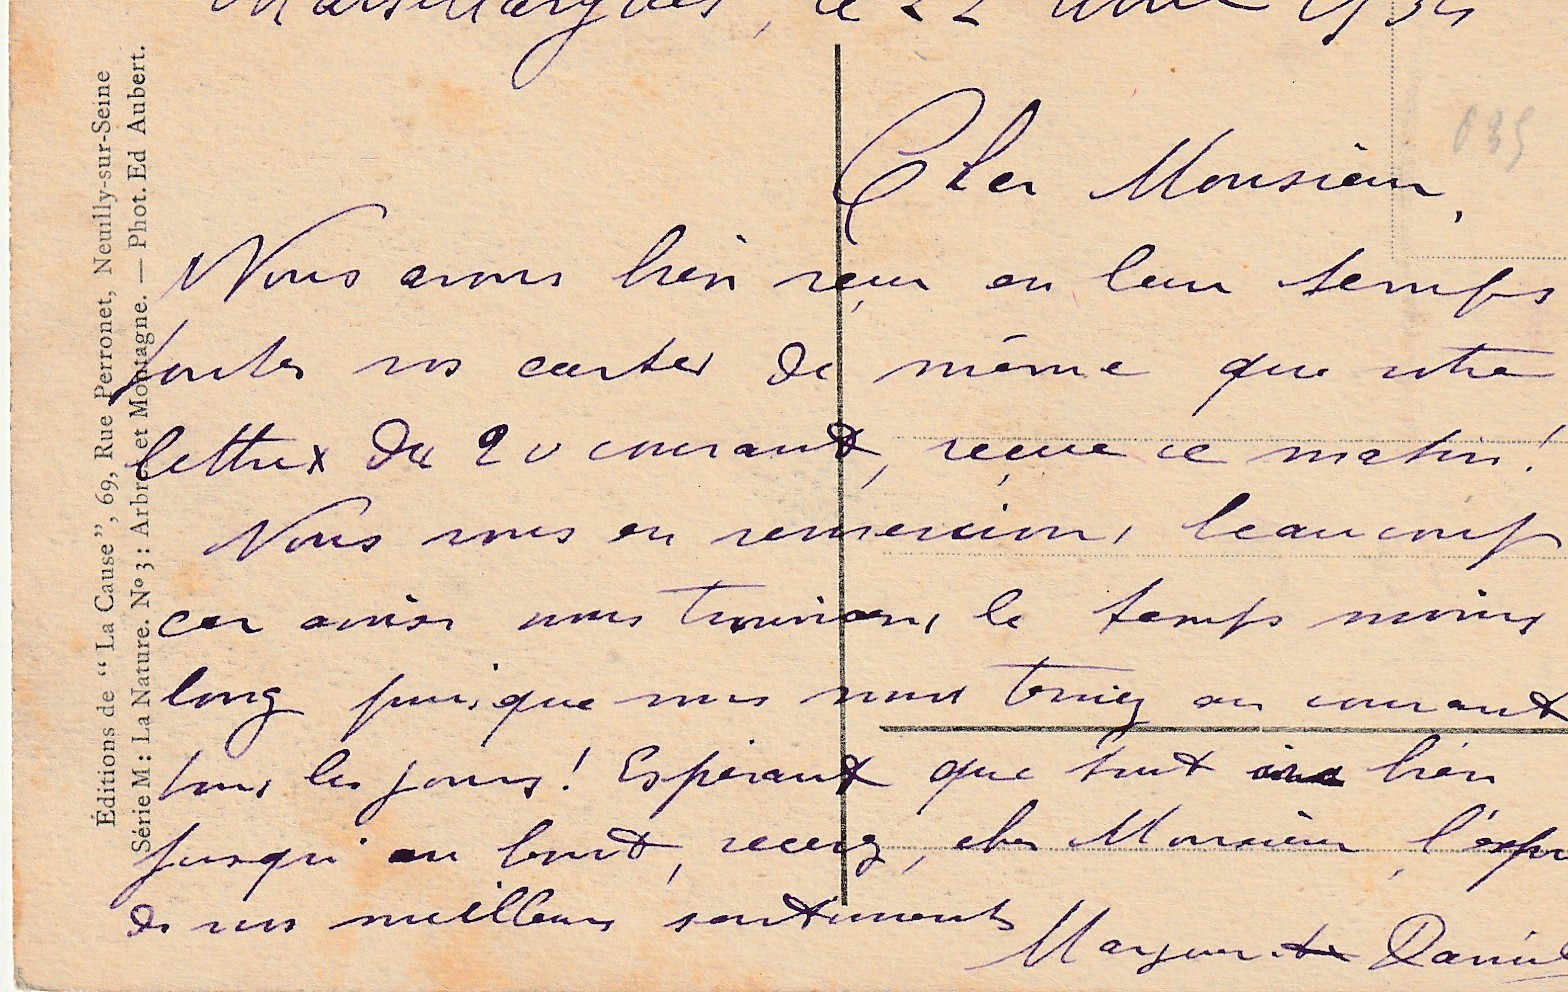 Marsillargues, le 22 Avril 193
Cher Monsieur,
Nous avons bien reçu en leur temps
toutes vos cartes de même que votre
lettre du 20 courant, reçue ce matin!
Nous vous en remercions beaucoup
car ainsi nous trouvions le temps moins
long puisque vous nous teniez au courant
tous les jours! Espérant que tout ira bien
jusqu'au bout, recevez, cher Monsieur, l'expr
de nos meilleurs sentiments
Marguerite Daniel
Éditions de “ La Cause”, 69, Rue Perronet, Neuilly-sur-Seine
Série M : La Nature. Nº 3 : Arbre et Montagne. — Phot. Ed Aubert.